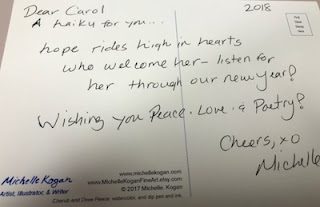 Dear Carol
2018
A haiku for you...
Place
Stamp
Here
hope rides high in hearts
who welcome her— listen for
her through our new year!
Wishing you Peace · Love · & Poetry!
Cheers, xo
Michelle
www.michellekogan.com
www.MichelleKoganFineArt.etsy.com
© 2017 Michelle Kogan
Michelle Kogan
Artist, Illustrator, & Writer